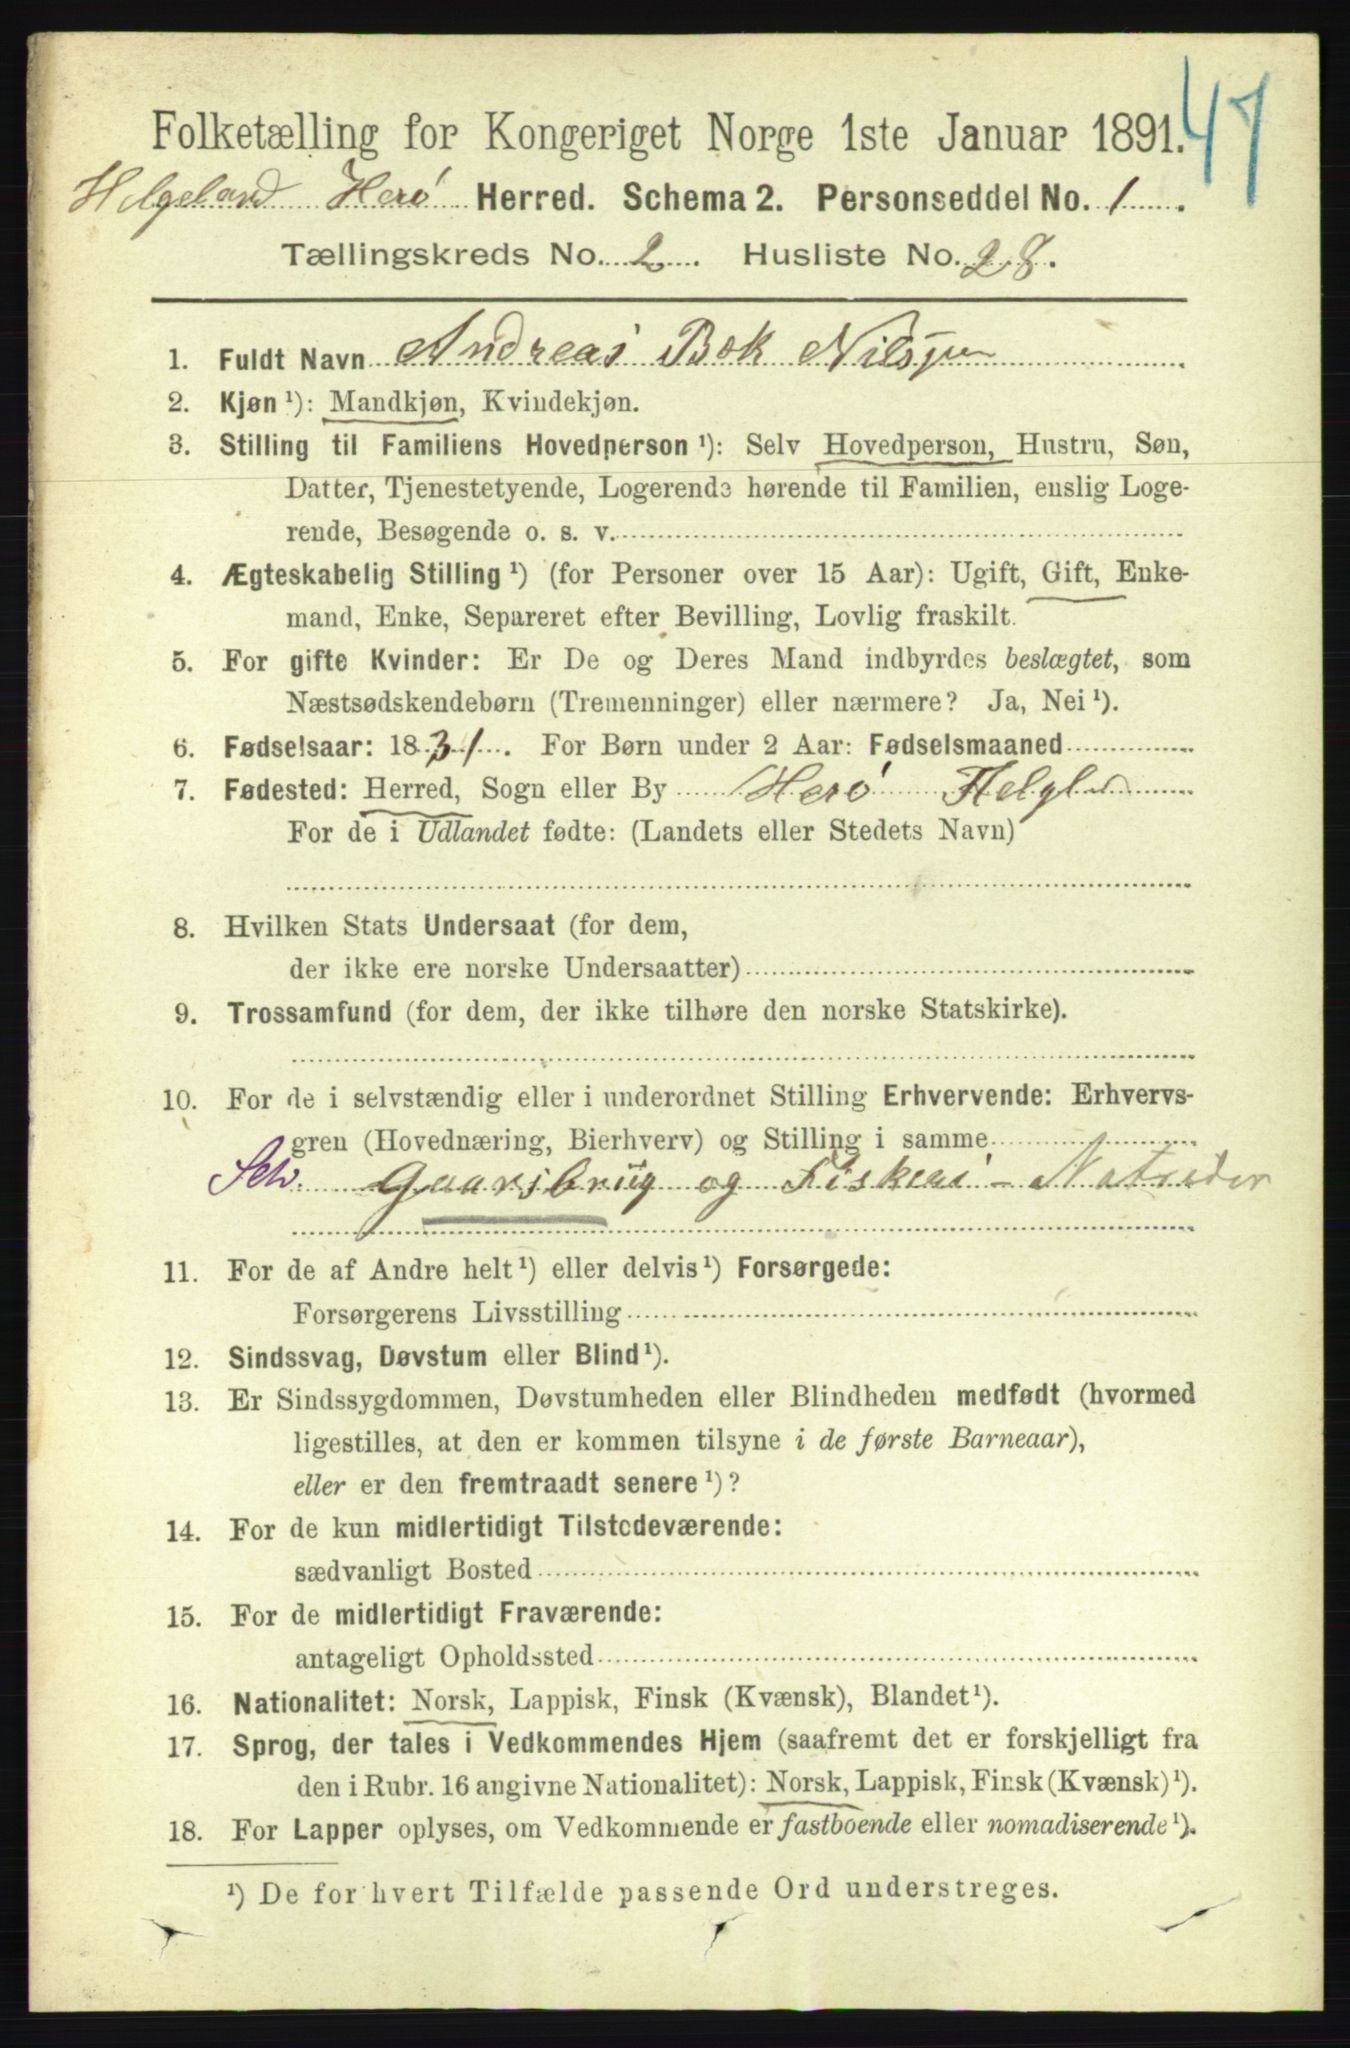 47
Folketælling for Kongeriget Norge 1ste Januar 1891.
Helgeland Herø Herred. Schema 2. Personseddel No. 1.
Tællingskreds No. 2. Husliste No. 28.
1. Fuldt Navn Andreas Bek Nilssen
2. Kjøn ¹): Mandkjøn, Kvindekjøn.
3. Stilling til Familiens Hovedperson ¹): Selv Hovedperson, Hustru, Søn,
Datter, Tjenestetyende, Logerende hørende til Familien, enslig Loge-
rende, Besøgende o. s. v.
4. Ægteskabelig Stilling ¹) (for Personer over 15 Aar): Ugift, Gift, Enke-
mand, Enke, Separeret efter Bevilling, Lovlig fraskilt.
5. For gifte Kvinder: Er De og Deres Mand indbyrdes beslægtet, som
Næstsødskendebørn (Tremenninger) eller nærmere? Ja, Nei ¹).
6. Fødselsaar: 1831. For Børn under 2 Aar: Fødselsmaaned
7. Fødested: Herred, Sogn eller By Herø Helgld
For de i Udlandet fødte: (Landets eller Stedets Navn)
8. Hvilken Stats Undersaat (for dem,
der ikke ere norske Undersaatter)
9. Trossamfund (for dem, der ikke tilhøre den norske Statskirke).
10. For de i selvstændig eller i underordnet Stilling Erhvervende: Erhvervs-
gren (Hovednæring, Bierhverv) og Stilling i samme
Selv. Gaarsbrug og Fiskeri -
11. For de af Andre helt ¹) eller delvis ¹) Forsørgede:
Forsørgerens Livsstilling
12. Sindssvag, Døvstum eller Blind ¹).
13. Er Sindssygdommen, Døvstumheden eller Blindheden medfødt (hvormed
ligestilles, at den er kommen tilsyne i de første Barneaar),
eller er den fremtraadt senere ¹)?
14. For de kun midlertidigt Tilstedeværende:
sædvanligt Bosted
15. For de midlertidigt Fraværende:
antageligt Opholdssted
16. Nationalitet: Norsk, Lappisk, Finsk (Kvænsk), Blandet ¹).
17. Sprog, der tales i Vedkommendes Hjem (saafremt det er forskjelligt fra
den i Rubr. 16 angivne Nationalitet): Norsk, Lappisk, Finsk (Kvænsk) ¹).
18. For Lapper oplyses, om Vedkommende er fastboende eller nomadiserende ¹).
¹) De for hvert Tilfælde passende Ord understreges.